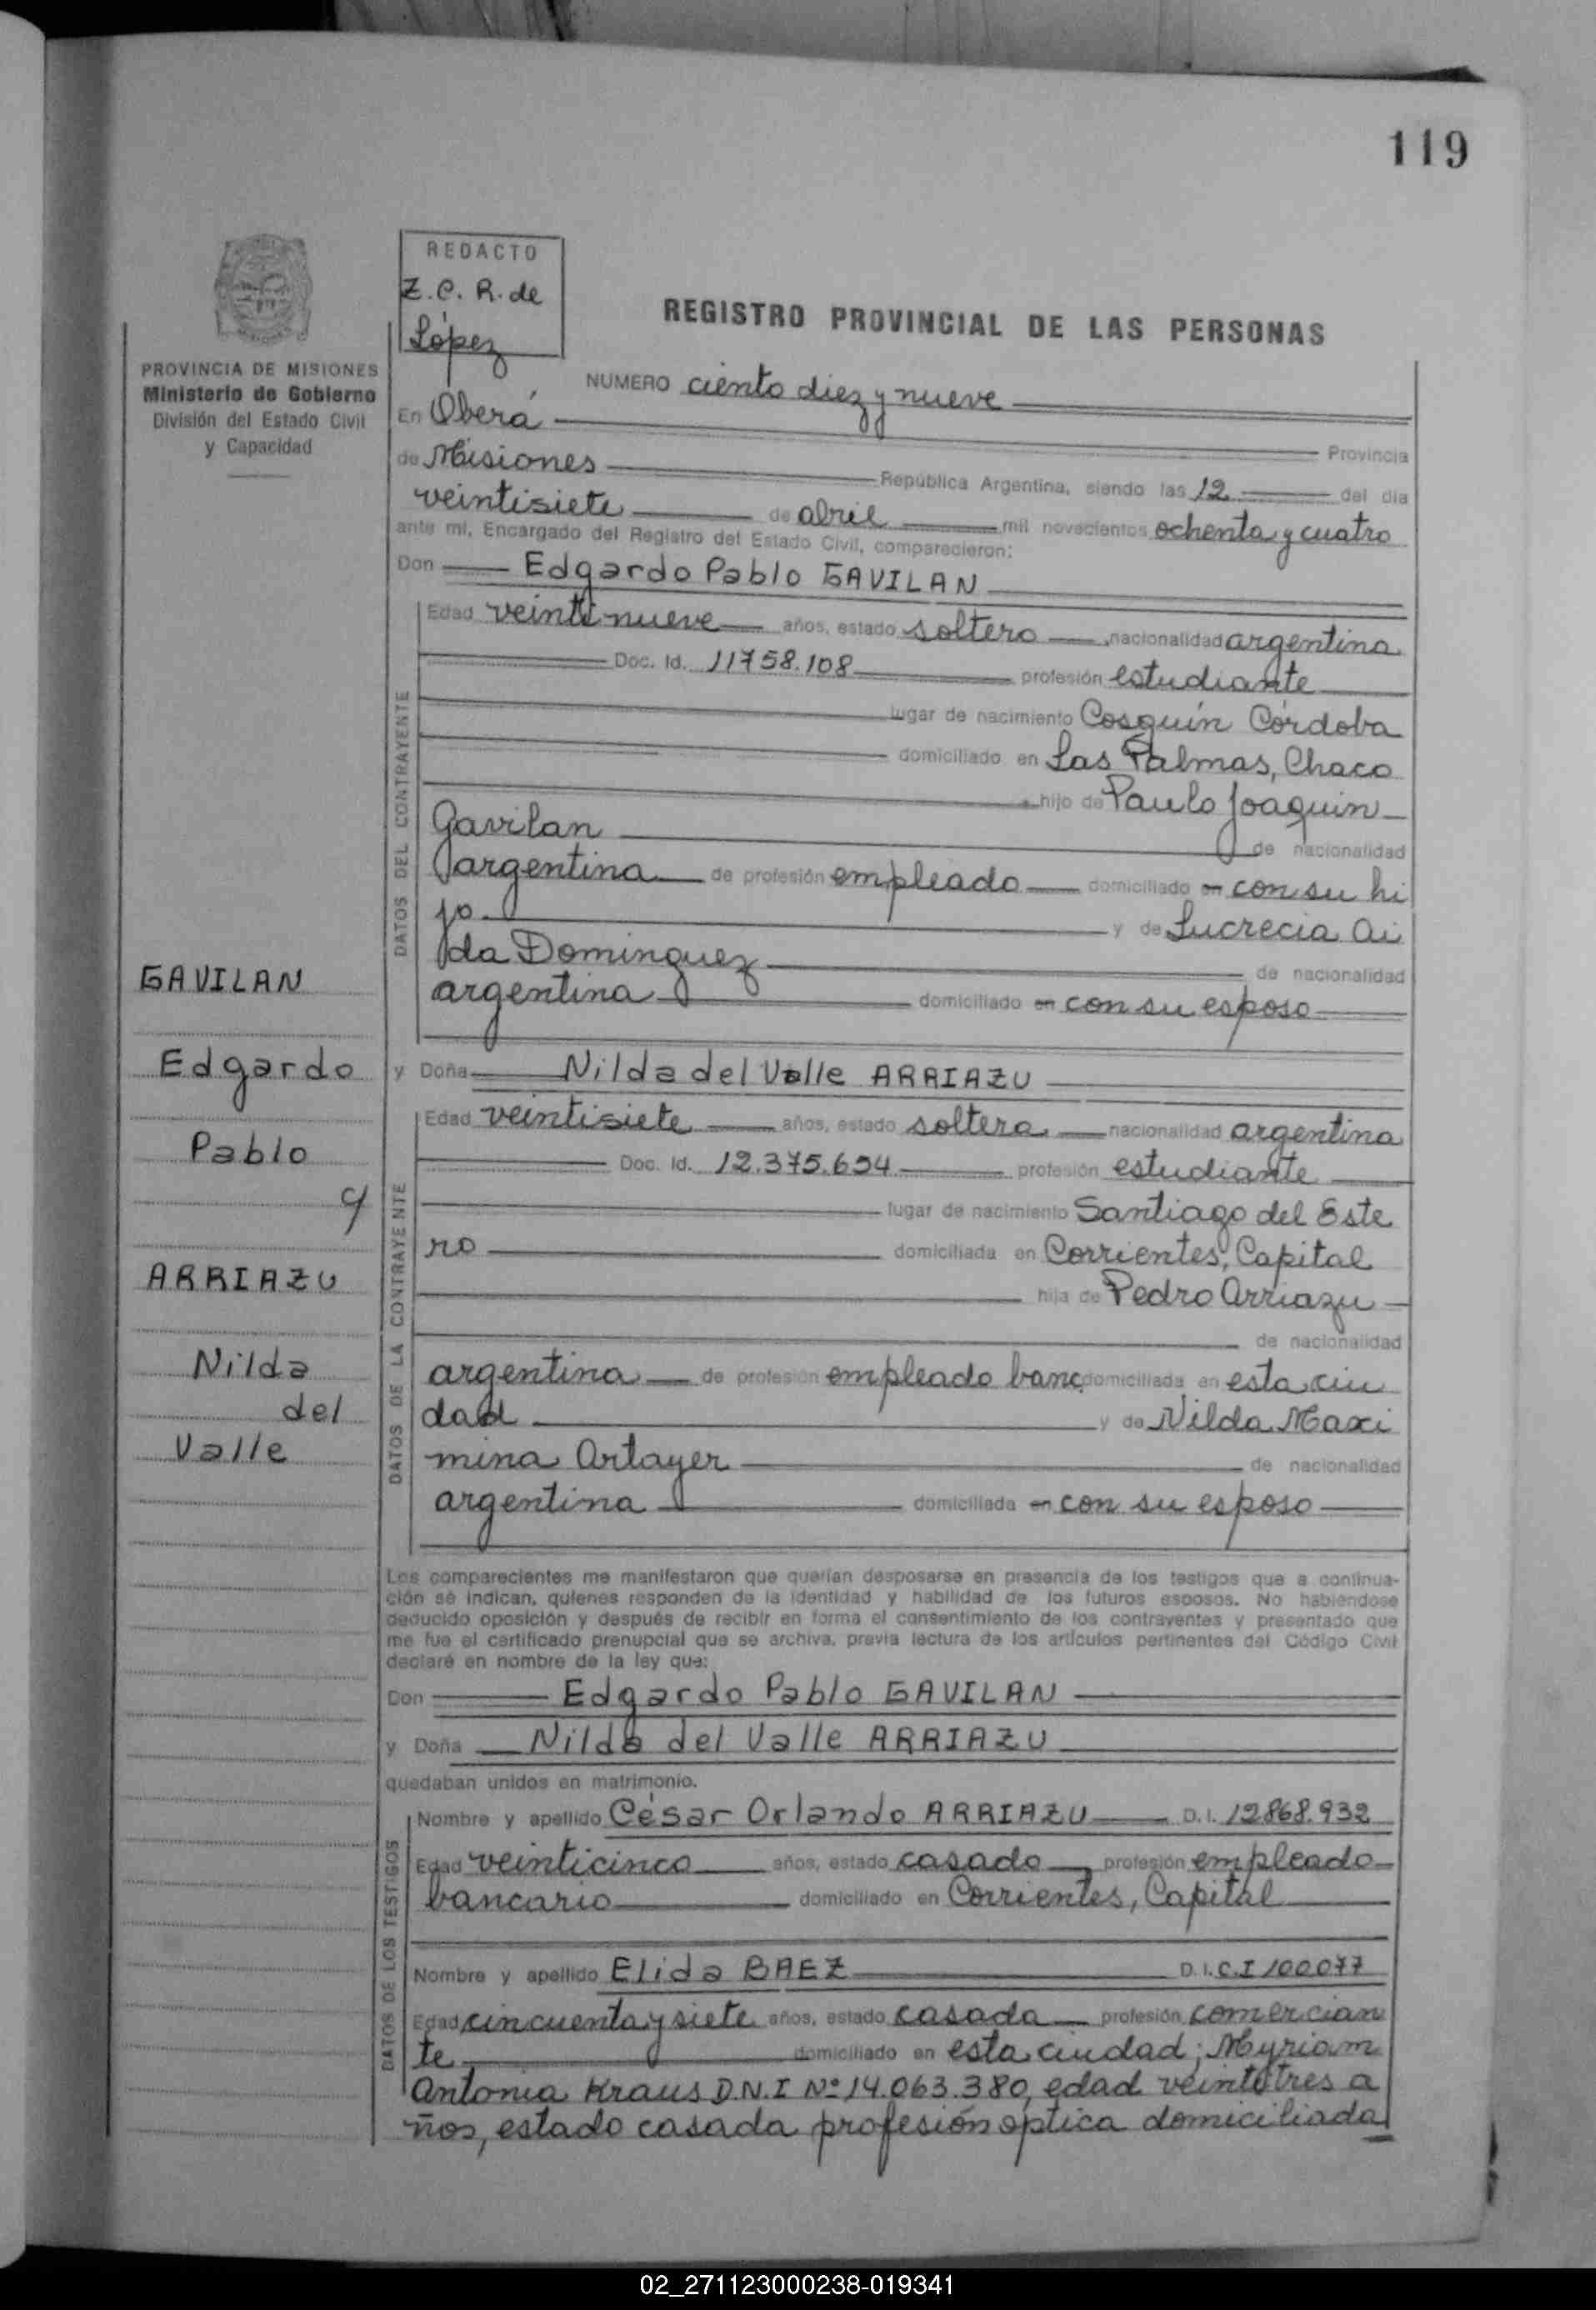 119
REDACTO
Z. C. R. de
López
REGISTRO PROVINCIAL DE LAS PERSONAS
PROVINCIA DE MISIONES
Ministerio de Gobierno
División del Estado Civil
y Capacidad
NUMERO ciento diez y nueve
En Oberá
Provincia
de Misiones República Argentina, siendo las 12 del día
veintisiete de abril mil novecientos ochenta y cuatro
ante mí, Encargado del Registro del Estado Civil, comparecieron:
Don Edgardo Pablo GAVILAN
DATOS DEL CONTRAYENTE
Edad veintinueve años, estado soltero nacionalidad argentina
Doc. Id. 11758.108 profesión estudiante
lugar de nacimiento Cosquín Córdoba
domiciliado en Las Palmas, Chaco
hijo de Paulo Joaquin
Gavilan de nacionalidad
argentina de profesión empleado domiciliado en con su hi
jo y de Lucrecia Ai
da Dominguez de nacionalidad
argentina domiciliado en con su esposo
y Doña Nilda del Valle ARRIAZU
DATOS DE LA CONTRAYENTE
Edad veintisiete años, estado soltera nacionalidad argentina
Doc. Id. 12.375.654 profesión estudiante
lugar de nacimiento Santiago del Este
ro domiciliada en Corrientes, Capital
hija de Pedro Arriazu
de nacionalidad
argentina de profesión empleado banc. domiciliada en esta ciu
dad y de Nilda Maxi
mina Artayer de nacionalidad
argentina domiciliada en con su esposo
GAVILAN
Edgardo
Pablo
y
ARRIAZU
Nilda
del
Valle
Los comparecientes me manifestaron que querían desposarse en presencia de los testigos que a continua-
ción se indican, quienes responden de la identidad y habilidad de los futuros esposos. No habiéndose
deducido oposición y después de recibir en forma el consentimiento de los contrayentes y presentado que
me fue el certificado prenupcial que se archiva, previa lectura de los artículos pertinentes del Código Civil
declaré en nombre de la ley que:
Don Edgardo Pablo GAVILAN
y Doña Nilda del Valle ARRIAZU
quedaban unidos en matrimonio.
DATOS DE LOS TESTIGOS
Nombre y apellido César Orlando ARRIAZU D.I. 12868.932
Edad veinticinco años, estado casado profesión empleado
bancario domiciliado en Corrientes, Capital
Nombre y apellido Elida BAEZ D.I. C.I 100077
Edad cincuenta y siete años, estado casada profesión comercian
te domiciliado en esta ciudad; Myriam
Antonia Kraus D.N.I Nº 14.063.380, edad veintitres a
ños, estado casada profesión optica domiciliada
02_271123000238-019341